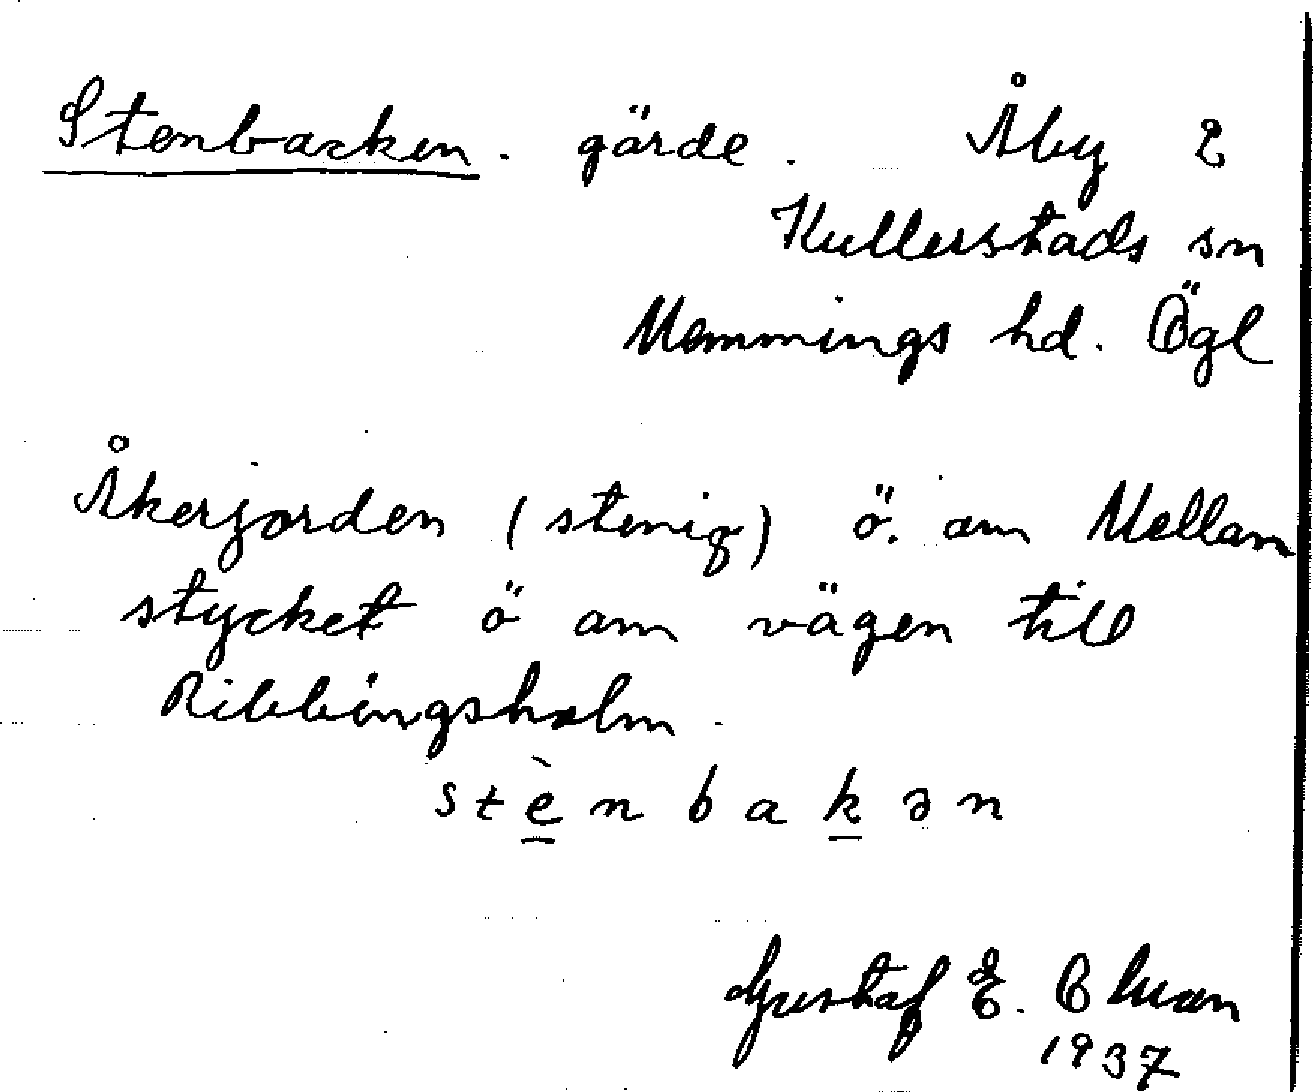 Stenbacken. gärde. Åby 2
Kullerstads sn
Memmings hd. Ögl
Åkerjorden (stenig) ö. om Mellan
stycket ö om vägen till
Ribbingsholm.
stènbakən
Gustaf E.
1937